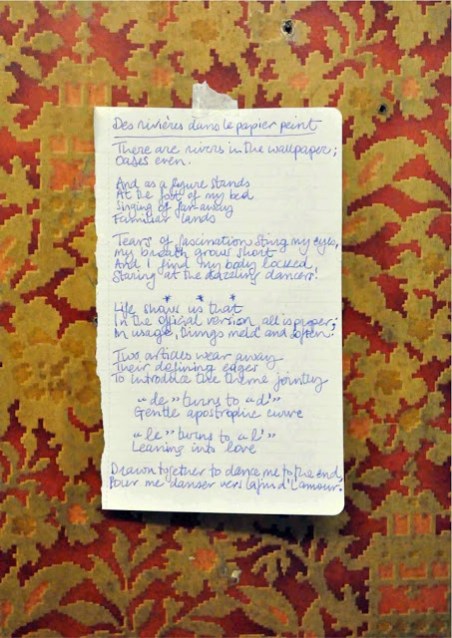 Des rivières dans le papier peint
There are rivers in the wallpaper;
Oases even.
And as a figure stands
At the foot of my bed
Singing of far-away
Familiar lands
Tears of fascination sting my eyes,
my breath grows short
And I find my body locked,
Staring at the dazzling dancers.
* * *
Life shows us that
In the official version all is proper;
In usage, things meld and soften.
Two articles wear away
Their defining edges
To introduce the theme jointly
"de" turns to "d'"
Gentle apostrophic curve
"le" turns to "l'"
Leaning into love
Drawn together to dance me to the end,
Pour me danser vers la fin d'l'amour.